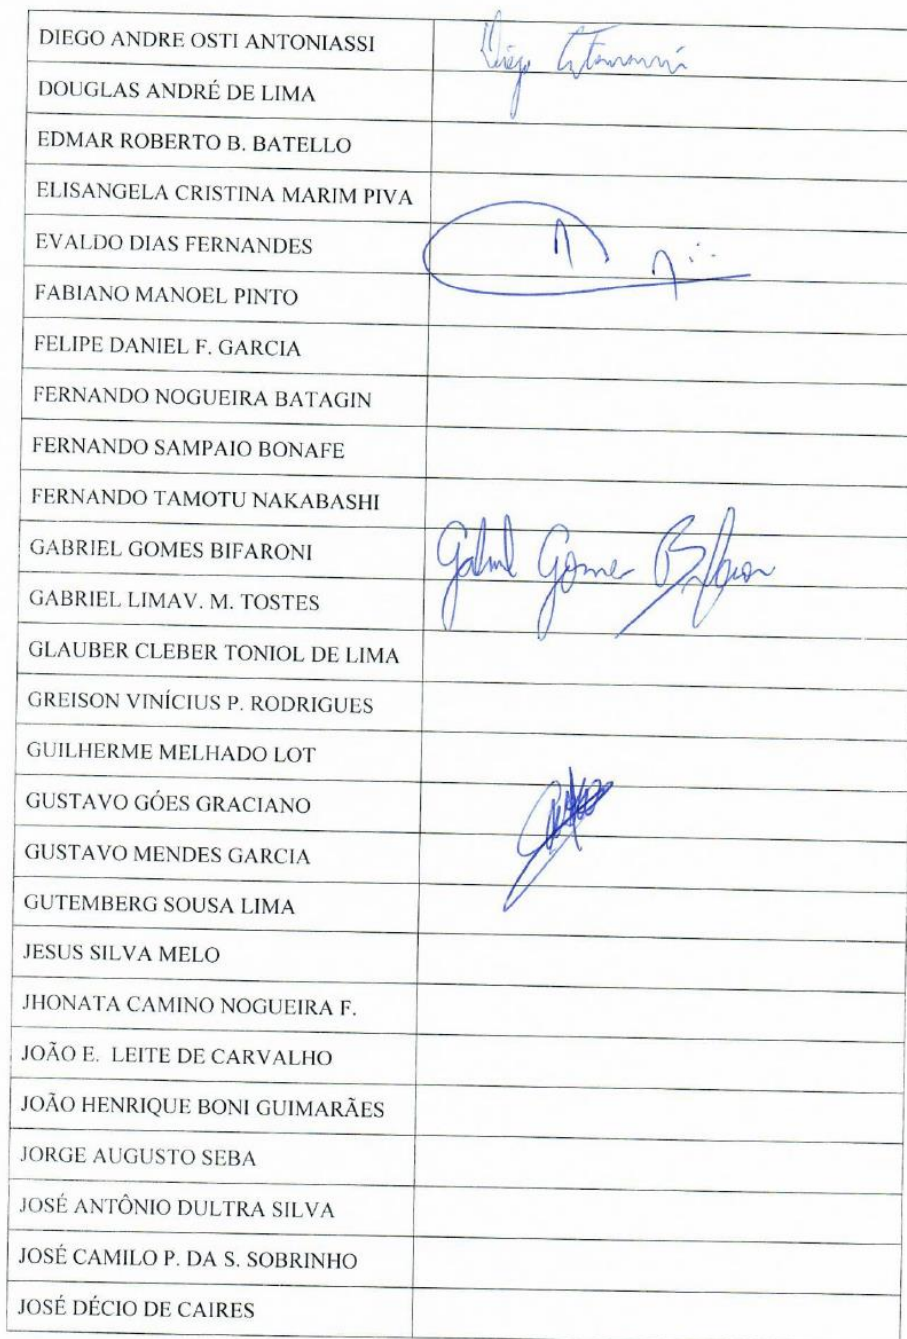 DIEGO ANDRE OSTI ANTONIASSI Diego Antoniassi
DOUGLAS ANDRÉ DE LIMA
EDMAR ROBERTO B. BATELLO
ELISANGELA CRISTINA MARIM PIVA
EVALDO DIAS FERNANDES
FABIANO MANOEL PINTO
FELIPE DANIEL F. GARCIA
FERNANDO NOGUEIRA BATAGIN
FERNANDO SAMPAIO BONAFE
FERNANDO TAMOTU NAKABASHI
GABRIEL GOMES BIFARONI Gabriel Gomes Bifaroni
GABRIEL LIMAV. M. TOSTES
GLAUBER CLEBER TONIOL DE LIMA
GREISON VINÍCIUS P. RODRIGUES
GUILHERME MELHADO LOT
GUSTAVO GÓES GRACIANO
GUSTAVO MENDES GARCIA
GUTEMBERG SOUSA LIMA
JESUS SILVA MELO
JHONATA CAMINO NOGUEIRA F.
JOÃO E. LEITE DE CARVALHO
JOÃO HENRIQUE BONI GUIMARÃES
JORGE AUGUSTO SEBA
JOSÉ ANTÔNIO DULTRA SILVA
JOSÉ CAMILO P. DA S. SOBRINHO
JOSÉ DÉCIO DE CAIRES